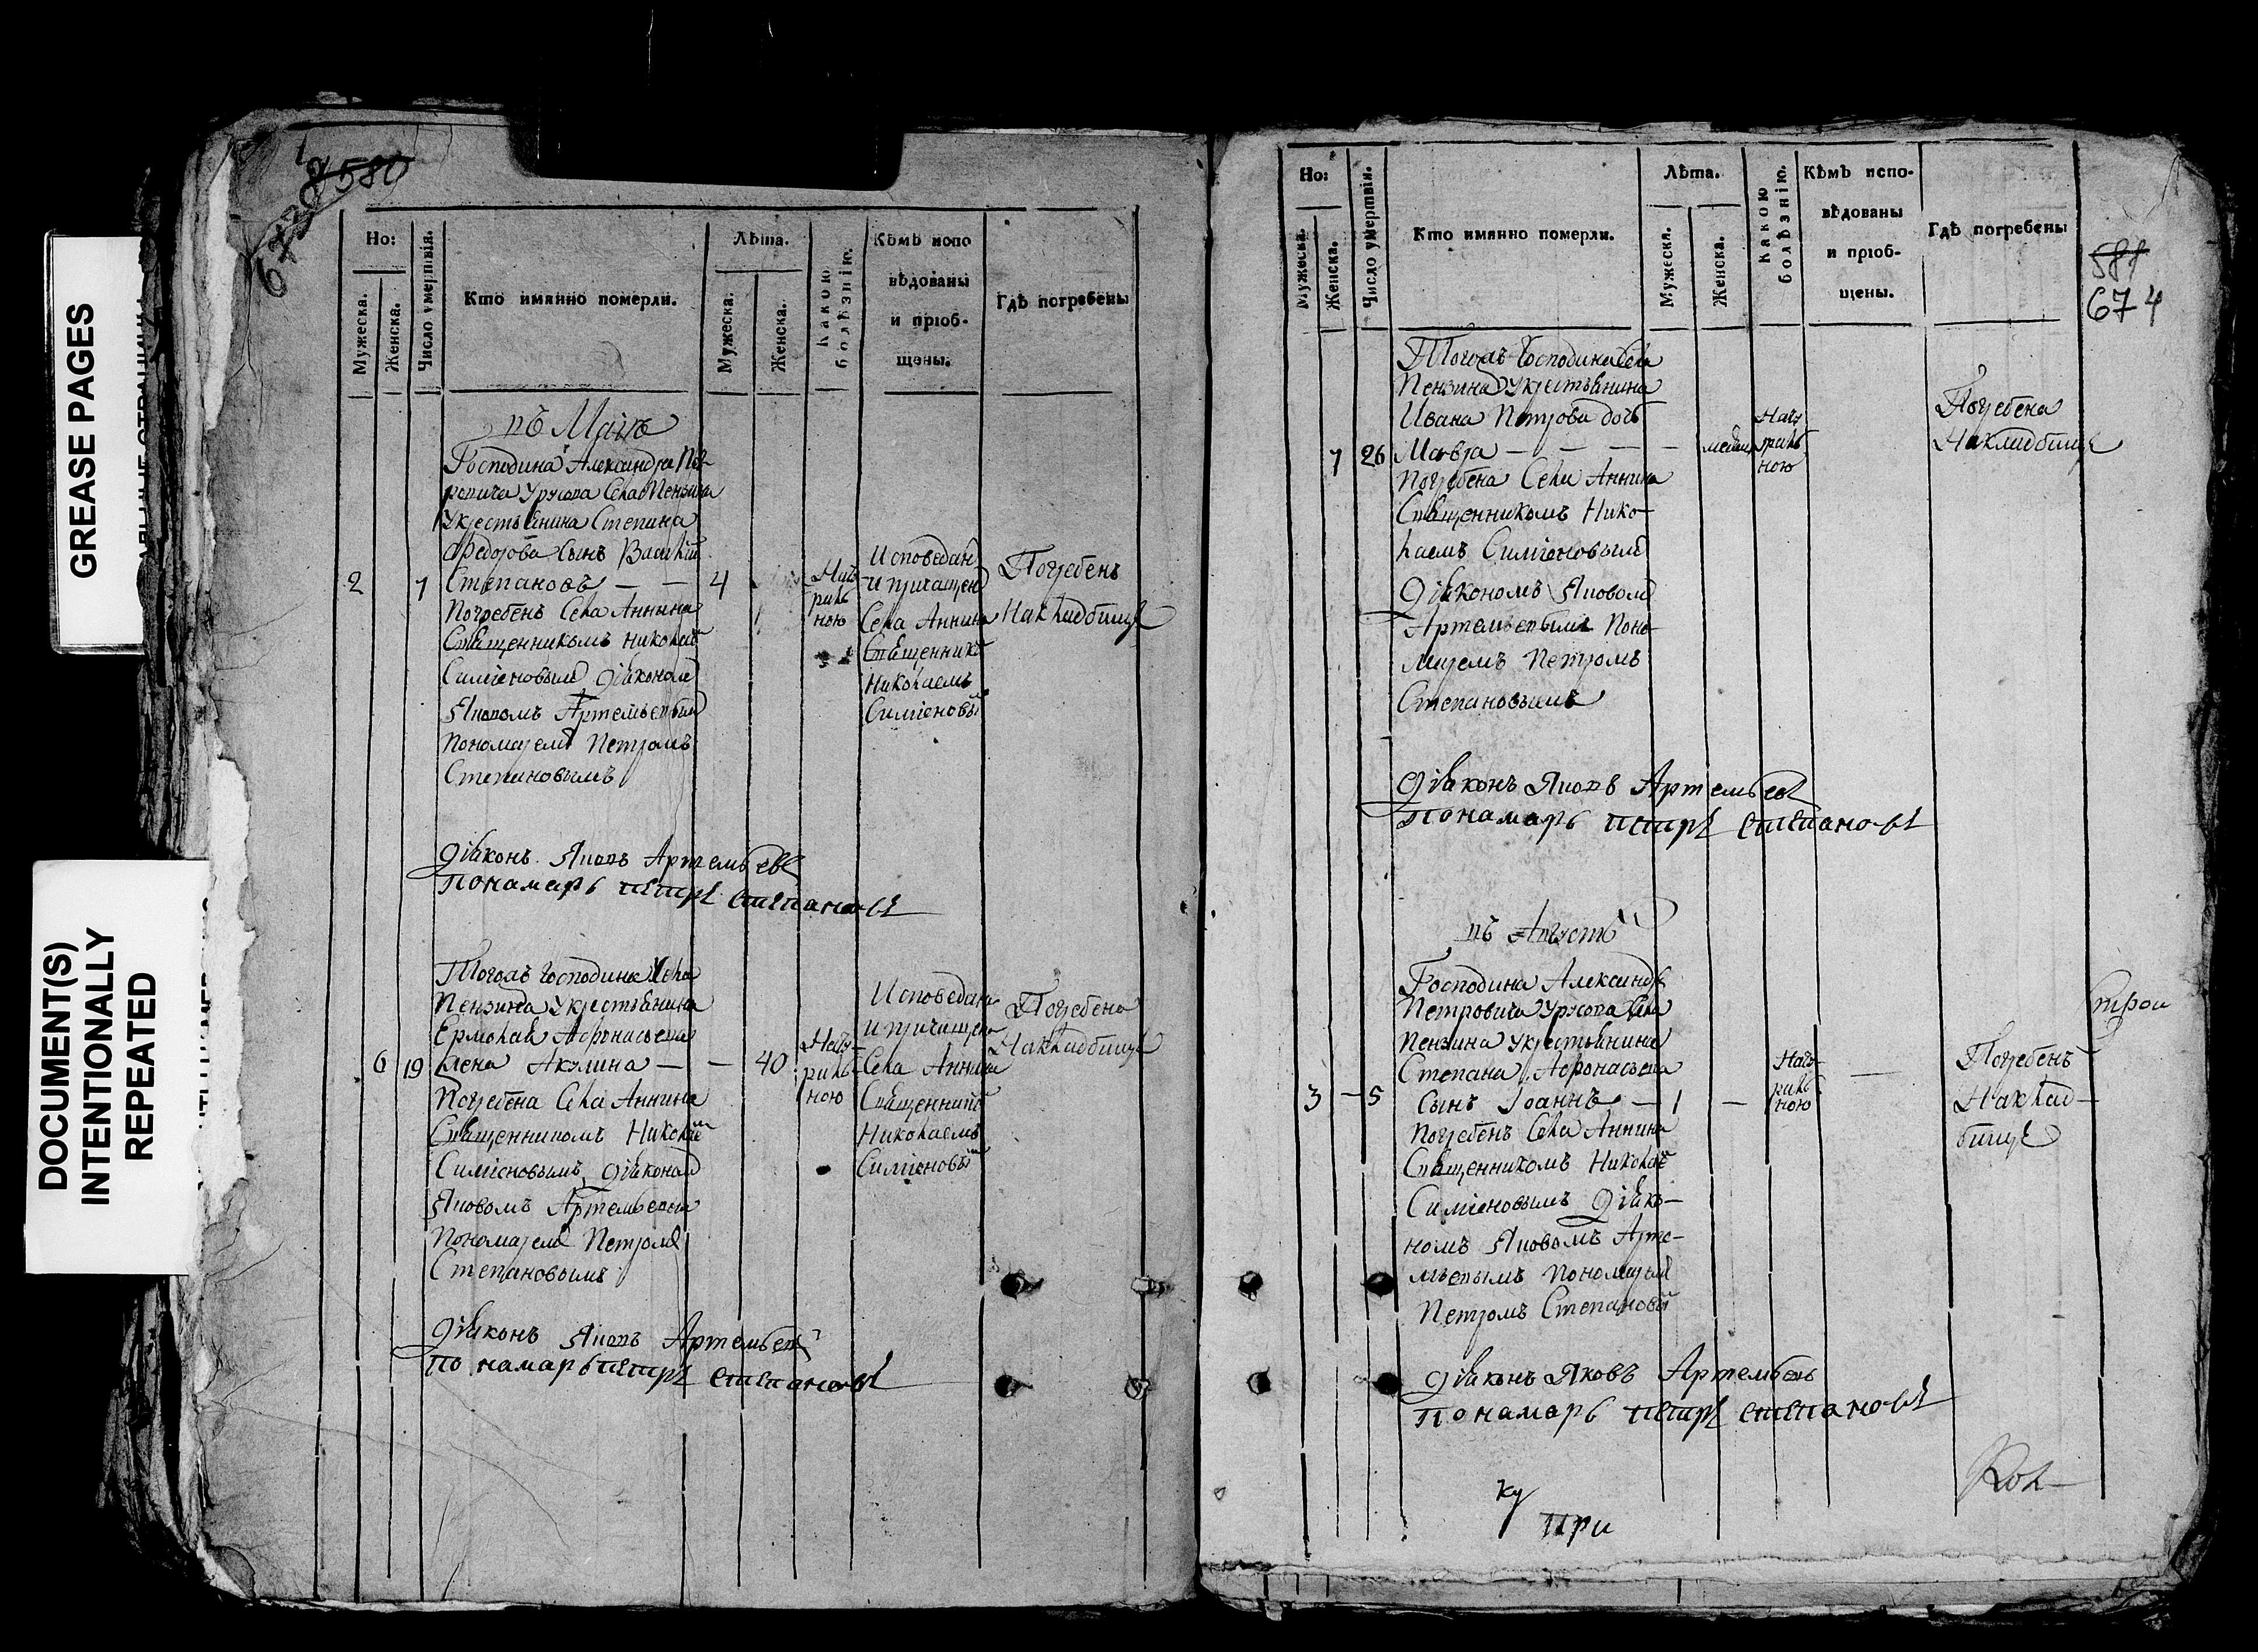 GREASE PAGES
DOCUMENT(S)
INTENTIONALLY
REPEATED
580
673
Но:
Мужеска.
Женска.
Число умертвія.
Кто имянно померли.
Лѣта.
Мужеска.
Женска.
Какою
болѣзнію.
Кѣмъ испо
вѣдованы
и пріоб-
щены.
Гдѣ погребены
въ Маіе
Господина Александра Пет-
ровича Урусова Села Пензина
Укрестьянина Степана
Федорова Сынъ Василий
2
7
Степановъ — — 4
Погребенъ Села Аннина
Священникомъ Николае
Симіеновым Діяконом
Яковомъ Артемьевым
Пономарем Петромъ
Степановымъ
Нату
раль
ною
Исповедан
и причащен
Села Аннина
Священник
Николаемъ
Симіеновы
Погребенъ
На кладбище
Діяконъ Яковъ Артемьев
Понамарь петръ степановъ
Тогожъ Господина Села
Пензина Укрестьянина
Ермолая Афонасьева
6 19 жена Акулина — — 40
Погребена Села Аннина
Священником Николае
Симіеновымъ Діяконом
Яковомъ Артемьевым
Пономарем Петром
Степановымъ
Нату
раль
ною
Исповедана
и причащена
Села Аннина
Священником
Николаемъ
Симіеновы
Погребена
На кладбище
Діяконъ Яковъ Артемьев
Понамарь петръ степановъ
Но:
Мужеска.
Женска.
Число умертвія.
Кто имянно померли.
Лѣта.
Мужеска.
Женска.
Какою
болѣзнію.
Кѣмъ испо-
вѣдованы
и пріоб-
щены.
Гдѣ погребены
674
Тогожъ Господина Села
Пензина Укрестьянина
Ивана Петрова дочь
7 26 Мавра — — — —
Погребена Села Аннина
Священникомъ Нико-
лаемъ Симіеновым
Діякономъ Яковом
Артемьевымъ Поно-
маремъ Петромъ
Степановымъ
Нату
раль
ною
Погребена
На кладбище
Діяконъ Яковъ Артемьев
Понамарь петръ степановъ
въ Августе
Господина Александра
Петровича Урусова Села
Пензина Укрестьянина
Степана Афонасьева
3 — 5 Сынъ Іоаннъ — 1 —
Погребенъ Села Аннина
Священникомъ Николае
Симіеновымъ Діяко-
номъ Яковомъ Арте-
мьевымъ Пономарем
Петромъ Степановы
Нату
раль
ною
—
Погребенъ
На клад-
бище
Діяконъ Яковъ Артемьевъ
Понамарь петръ степановъ
При